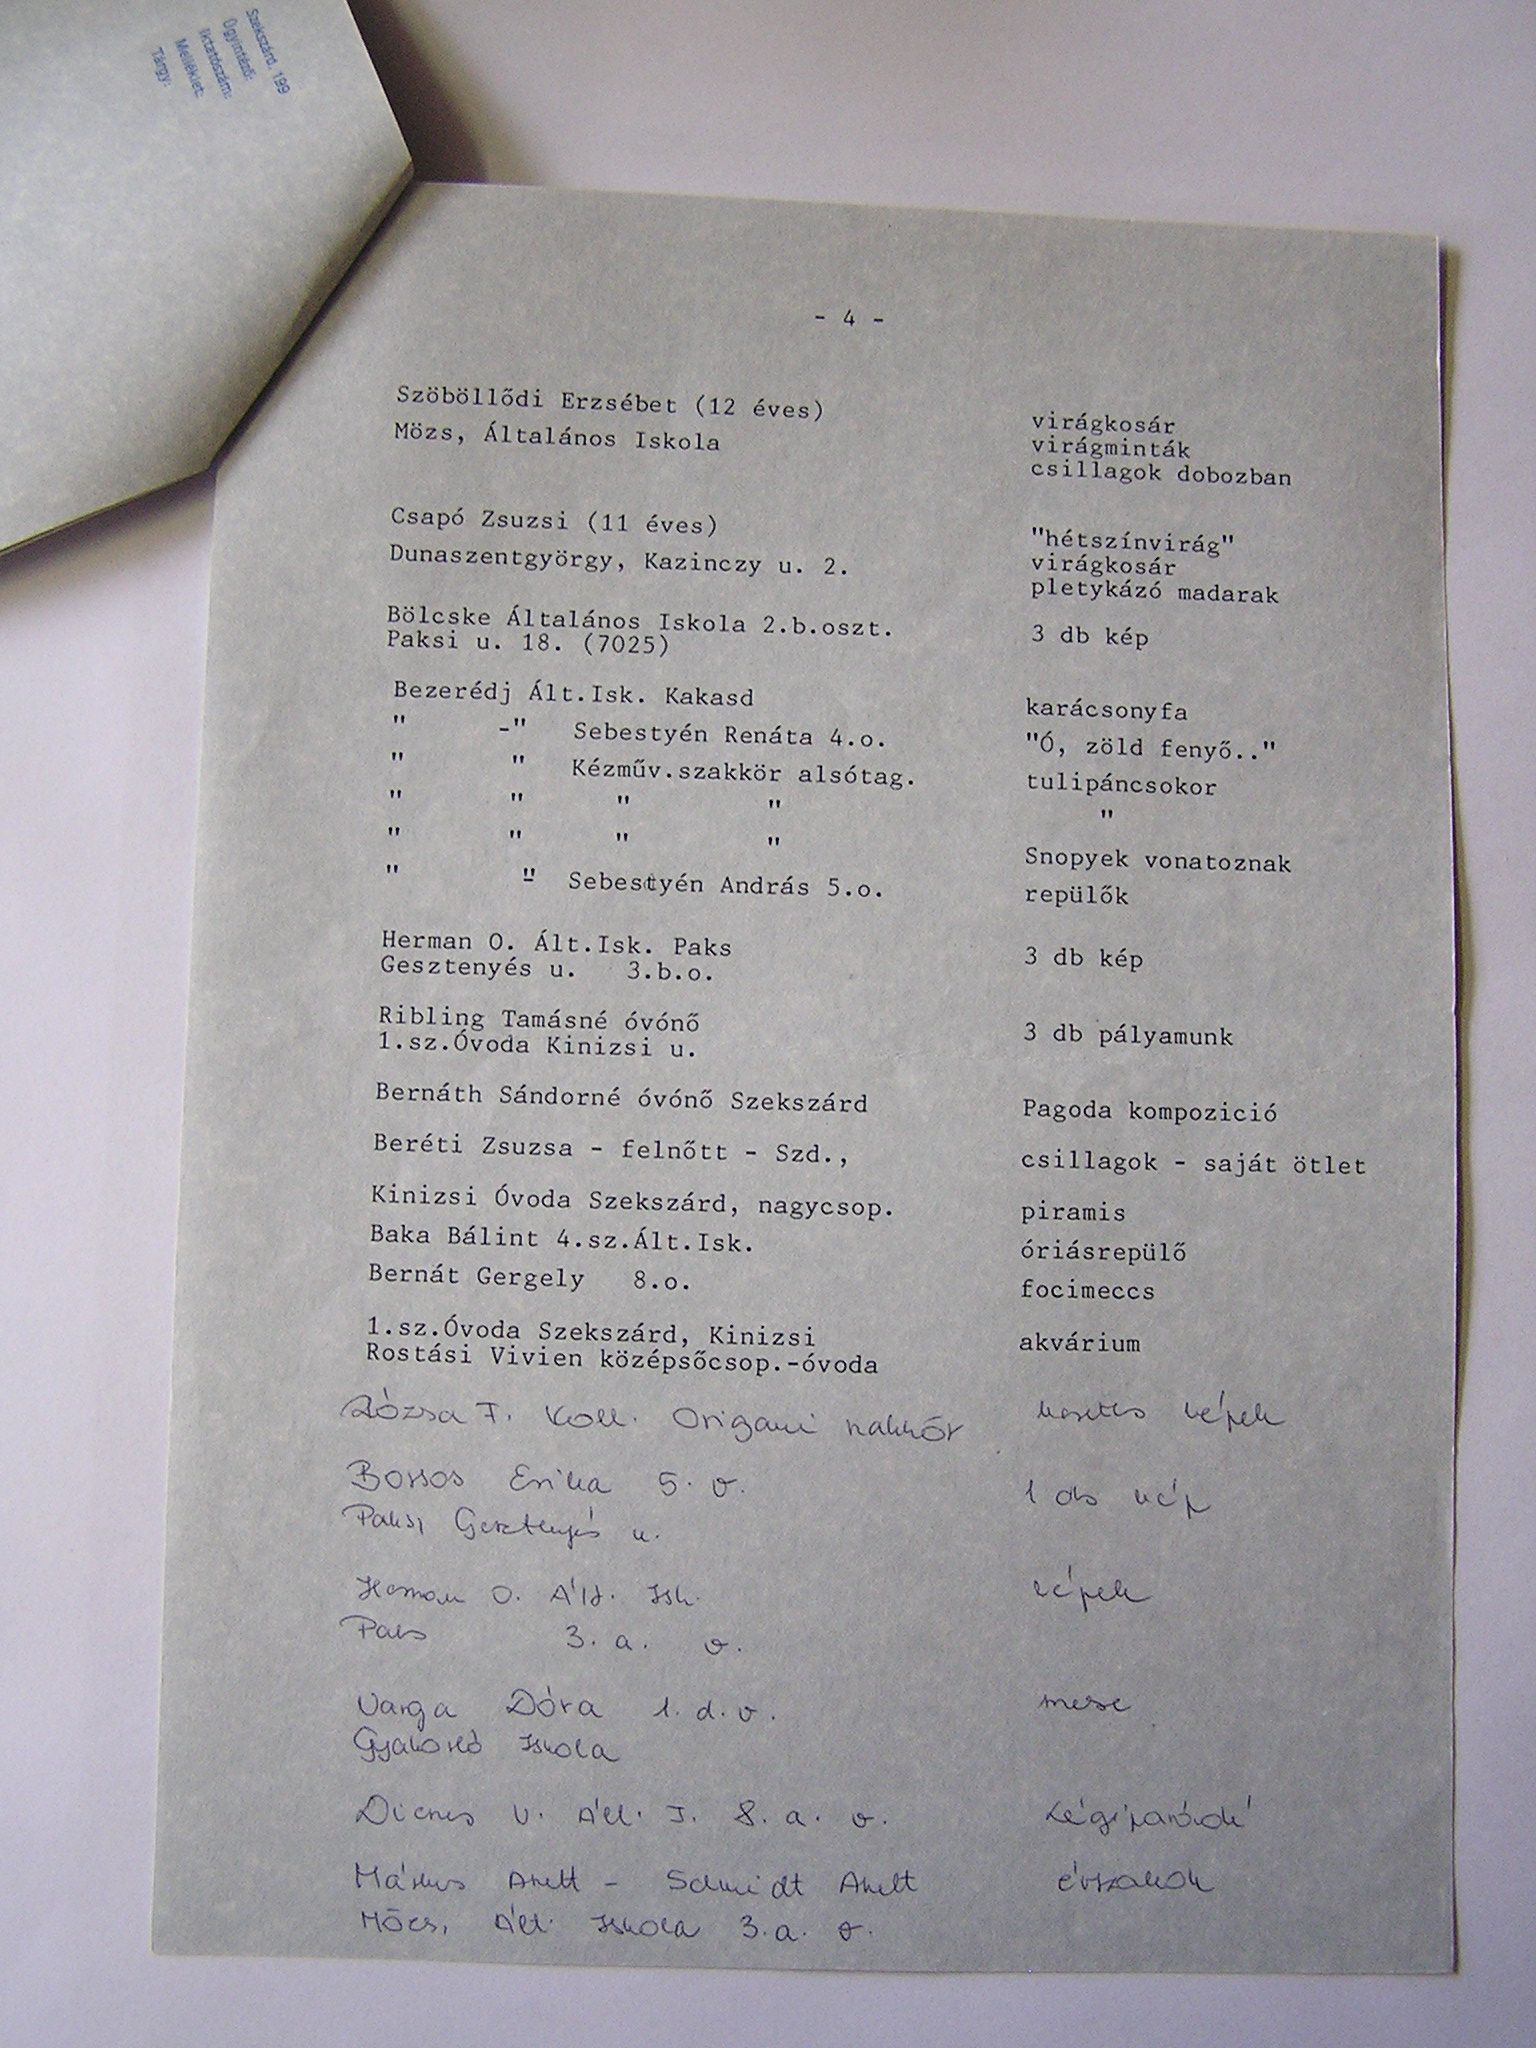 Szekszárd, 199
Ügyintéző:
Iktatószám:
Melléklet:
Tárgy:
- 4 -
Szöböllődi Erzsébet (12 éves)
Mözs, Általános Iskola
virágkosár
virágminták
csillagok dobozban
Csapó Zsuzsi (11 éves)
Dunaszentgyörgy, Kazinczy u. 2.
"hétszínvirág"
virágkosár
pletykázó madarak
Bölcske Általános Iskola 2.b.oszt.
Paksi u. 18. (7025)
3 db kép
Bezerédj Ált.Isk. Kakasd karácsonyfa
" -" Sebestyén Renáta 4.o. "Ó, zöld fenyő.."
" " Kézműv.szakkör alsótag. tulipáncsokor
" " " " "
" " " " Snopyek vonatoznak
" " Sebestyén András 5.o. repülők
Herman O. Ált.Isk. Paks
Gesztenyés u. 3.b.o.
3 db kép
Ribling Tamásné óvónő
1.sz.Óvoda Kinizsi u.
3 db pályamunk
Bernáth Sándorné óvónő Szekszárd Pagoda kompozició
Beréti Zsuzsa - felnőtt - Szd., csillagok - saját ötlet
Kinizsi Óvoda Szekszárd, nagycsop. piramis
Baka Bálint 4.sz.Ált.Isk. óriásrepülő
Bernát Gergely 8.o. focimeccs
1.sz.Óvoda Szekszárd, Kinizsi
Rostási Vivien középsőcsop.-óvoda
akvárium
Rózsa F. Koll. Origami szakkör keretes képek
Borsos Erika 5. o. 1 db kép
Paksi Gesztenyés u.
Herman O. Ált. Isk. képek
Paks 3. a. o.
Varga Dóra 1. d. o. mese
Gyakorló Iskola
Dienes V. Ált. I. 8. a. o. Légiparádé
Márkus Anett - Schmidt Anett évszakok
Mőcs, Ált. Iskola 3.a. o.